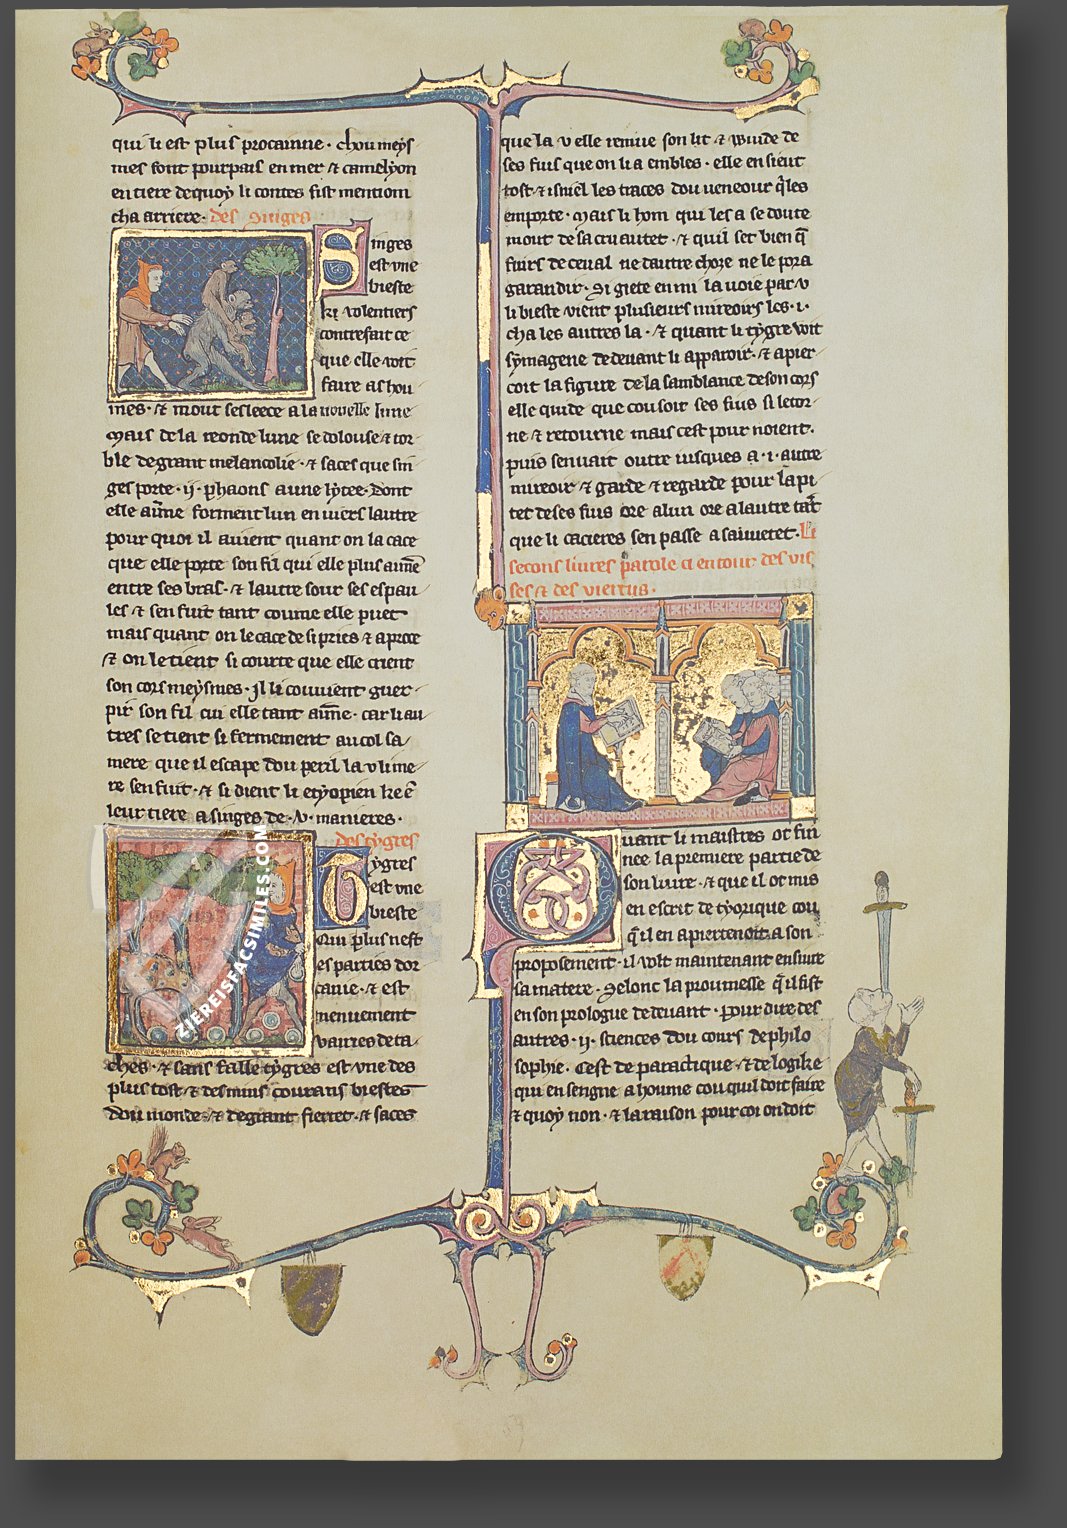 qui li est plus procainne · chou meys
mes font pourpais en mer & camelyon
en tiere de quoy li contes fist mention
cha arriere · des singes
Singes
est vne
bieste
ki volentiers
contrefait ce
que elle voit
faire as hou
mes · & mout sesleece a la nouuelle lune
Mais de la reonde lune se dolouse & tor
ble de grant melancolie · & saces que sin
ges porte · ij · phaons a une lytee · Dont
elle aime forment lun enuiers lautre
pour quoi il auient quant on la cace
que elle porte son fil qui elle plus aime
entre ses bras · & lautre sour ses espau
les & sen fuit tant coume elle puet
mais quant on le cace de si pries & aproce
& on le tient si courte que elle crient
son cors meysmes · Il li couuient guer
pir son fil cui elle tant aime · car li au
tres se tient si fermement au col sa
mere que il escape dou peril la v li me
re sen fuit · & si dient li etyopien ke en
leur tiere a singes de · v · manieres ·
des tygres
Tygres
est vne
bieste
qui plus nest
es parties dor
canie · & est
menuement
vairies de ta
ches · & sans faille tygres est vne des
plus tost & des mius courans biestes
dou monde · & de grant fierret · & saces
que la v elle remue son lit & wuide de
ses fius que on li a embles · elle ensieut
tost & isniel les traces dou ueneour qi les
emporte · Mais li hom qui les a se doute
mout de sa cruautet · & quil set bien que
fuirs de ceual ne dautre choze ne le pora
garandir · Si giete enmi la uoie par v
li bieste vient plusieurs mireoirs les · i ·
cha les autres la · & quant li tygre voit
symagene de deuant li apparoir · & apier
coit la figure de la samblance de son cors
elle quide que cou soit ses fius si letor
ne & retourne mais cest pour noient ·
puis sen uait outre iusques a · i · autre
mireoir & garde & regarde pour la pi
tet de ses fius ore a lun ore a lautre tant
que li cacieres sen passe a sauuetet · Li
secons liures parole ci entour des vis
ses & des viertus ·
Quant li maistres ot fin
nee la premiere partie de
son liure · & que il ot mis
en escrit de tyorique cou
qil en apiertenoit a son
proposement · il volt maintenant ensiure
sa matere · Selonc la proumesse qil fist
en son prologue de deuant · pour dire des
autres · ij · sciences dou cours de philo
sophie · Cest de practique · & de logike
qui enseigne a houme cou quil doit faire
& quoy non · & la raison pour coi on doit
ZIEREISFACSIMILES.COM